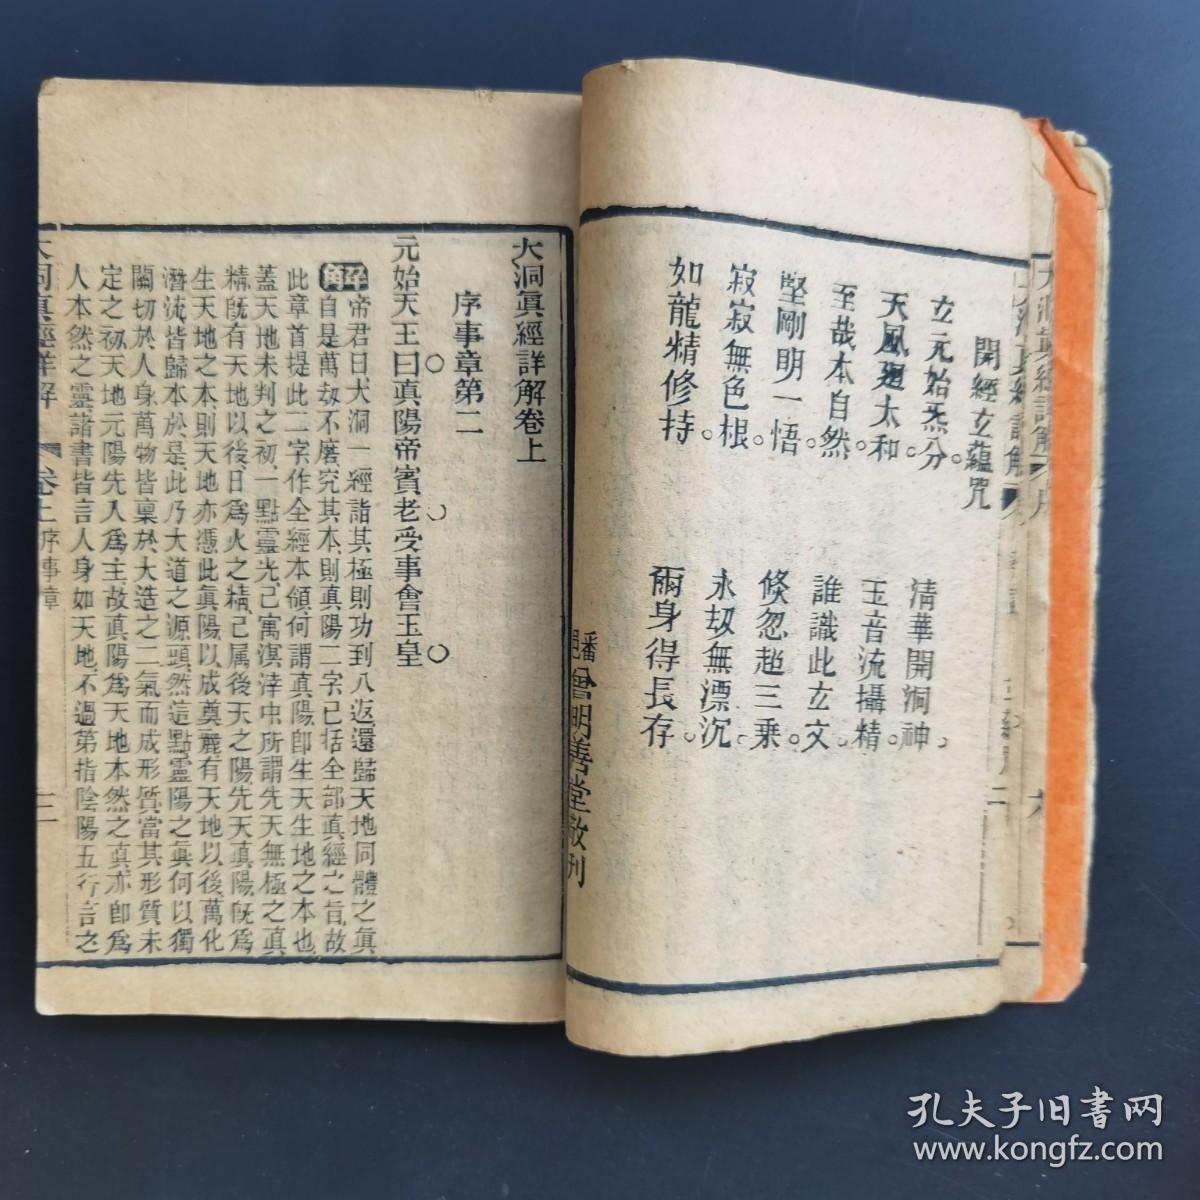 開經玄蘊咒
玄元始炁分。清華開洞神。
天風廻太和。玉音流攝精。
至哉本自然。誰識此玄文。
堅剛明一悟。倏忽超三乗。
寂寂無色根。永刼無漂沉。
如龍精修持。爾身得長存。
番邑曾明善堂敬刊
大洞眞經詳解卷上
序事章第二
元始天王曰眞陽帝賓老受事會玉皇
解帝君曰大洞一經詣其極則功到八返還歸天地同體之眞
自是萬刼不磨究其本則眞陽二字已括全部眞經之旨故
此章首提此二字作全經本領何謂眞陽卽生天生地之本也
蓋天地未判之初一點靈光已寓溟涬中所謂先天無極之眞
精旣有天地以後日爲火之精已属後天之陽先天眞陽旣爲
生天地之本則天地亦憑此眞陽以成奠麗有天地以後萬化
潛流皆歸本於是此乃大道之源頭然這點靈陽之眞何以獨
關切於人身萬物皆稟於大造之二氣而成形質當其形質未
定之初天地元陽先入爲主故眞陽爲天地本然之眞亦卽爲
人本然之靈諸書皆言人身如天地不過第指陰陽五行言之
大洞眞經詳解 卷上 序事章 三
孔夫子旧书网
www.kongfz.com